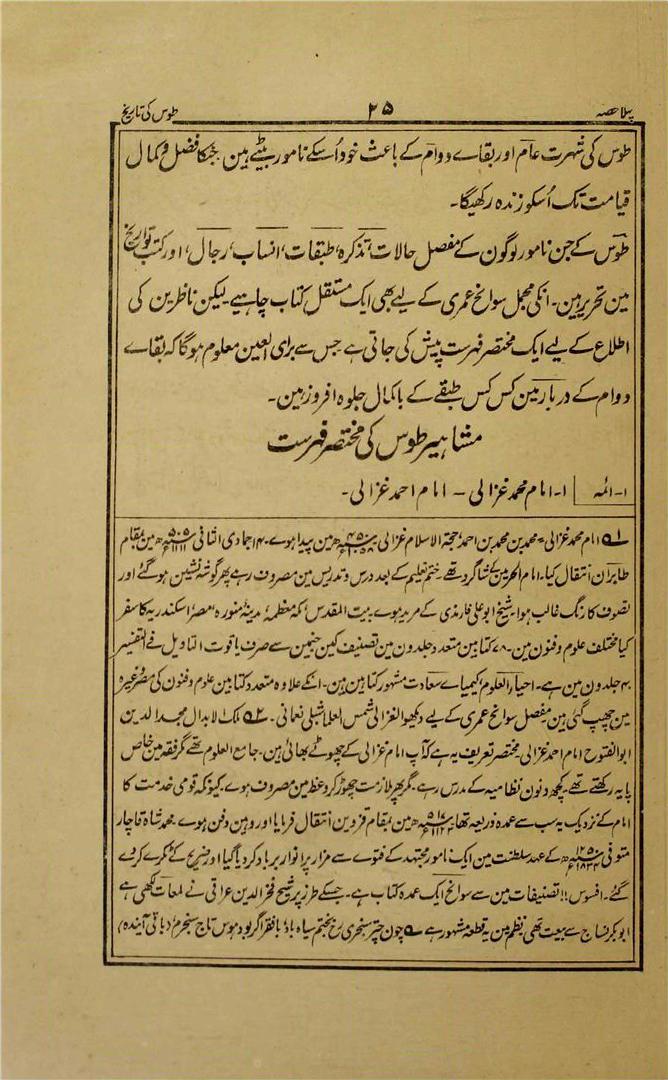 پہلا حصہ ۲۵ طوس کی تاریخ
طوس کی شہرت عام اور بقاے دوام کے باعث خود اُسکے نامور بیٹے ہین جنکا فضل و کمال
قیامت تک اُسکو زندہ رکھیگا۔
طوس کے جن نامور لوگون کے مفصل حالات، تذکرہ، طبقات، انساب، رجال، اور کتب تواریخ
مین تحریر ہین۔ انکی مجمل سوانح عمری کے لیے بھی ایک مستقل کتاب چاہیے۔ لیکن ناظرین کی
اطلاع کے لیے ایک مختصر فہرست پیش کی جاتی ہے جس سے برای العین معلوم ہوگا کہ بقاے
دوام کے دربار مین کس کس طبقے کے باکمال جلوہ افروز ہین۔
مشاہیر طوس کی مختصر فہرست
۱۔ ائمہ ۱۔ امام محمد غزالی ۔ امام احمد غزالی۔
۱ امام محمد غزالی۔ محمد بن محمد بن احمد، حجۃ الاسلام غزالی ۴۵۰ھ ۱۰۵۸ء مین پیدا ہوے۔ ۱۴ جمادی الثانی ۵۰۵ھ ۱۱۱۱ء مین بمقام
طابران انتقال کیا۔ امام الحرمین کے شاگرد تھے۔ ختم تعلیم کے بعد درس و تدریس مین مصروف رہے پھر گوشہ نشین ہوگئے اور
تصوف کا رنگ غالب ہوا۔ شیخ ابو علی فارمذی کے مرید ہوے۔ بیت المقدس، مکہ معظمہ، مدینہ منورہ، مصر، اسکندریہ کا سفر
کیا مختلف علوم و فنون مین ۷۸ کتابین متعدد جلدون مین تصنیف کین جنمین سے صرف یاقوت التاویل فے التفسیر
۴۰ جلدون مین ہے۔ احیاء العلوم، کیمیاے سعادت مشہور کتابین ہین۔ انکے علاوہ متعدد کتابین علوم و فنون کی مصر وغیرہ
مین چھپ گئی ہین مفصل سوانح عمری کے لیے دیکھو الغزالی شمس العلما شبلی نعمانی۔ ۲ ملک الابدال مجد الدین
ابو الفتوح امام احمد غزالی۔ مختصر تعریف یہ ہے کہ آپ امام غزالی کے چھوٹے بھائی ہین۔ جامع العلوم تھے مگر فقہ مین خاص
پایہ رکھتے تھے۔ کچھ دنون نظامیہ کے مدرس رہے۔ مگر پھر ملازمت چھوڑ کر وعظ مین مصروف ہوے۔ کیونکہ قومی خدمت کا
امام کے نزدیک یہ سب سے عمدہ ذریعہ تھا ۵۱۷ھ مین بمقام قزوین انتقال فرمایا اور وہین دفن ہوے۔ محمد شاہ قاچار
متوفی ۱۲۵۰ھ ۱۸۳۴ء کے عہد سلطنت مین ایک نامور مجتہد کے فتوے سے مزار پر انوار برباد کردیا گیا اور ضریح کے ٹکڑے کردیے
گئے۔ افسوس!! تصنیفات مین سے سوانح ایک عمدہ کتاب ہے۔ جسکے طرز پر شیخ فخر الدین عراقی نے لمعات لکھی ہے
ابوبکر نساج سے بیعت تھی نظم مین یہ قطعہ مشہور ہے چون چتر سنجری رخ بختم سیاہ باد؛ با فقر اگر بود ہوس تاج سنجرم (باقی آیندہ)